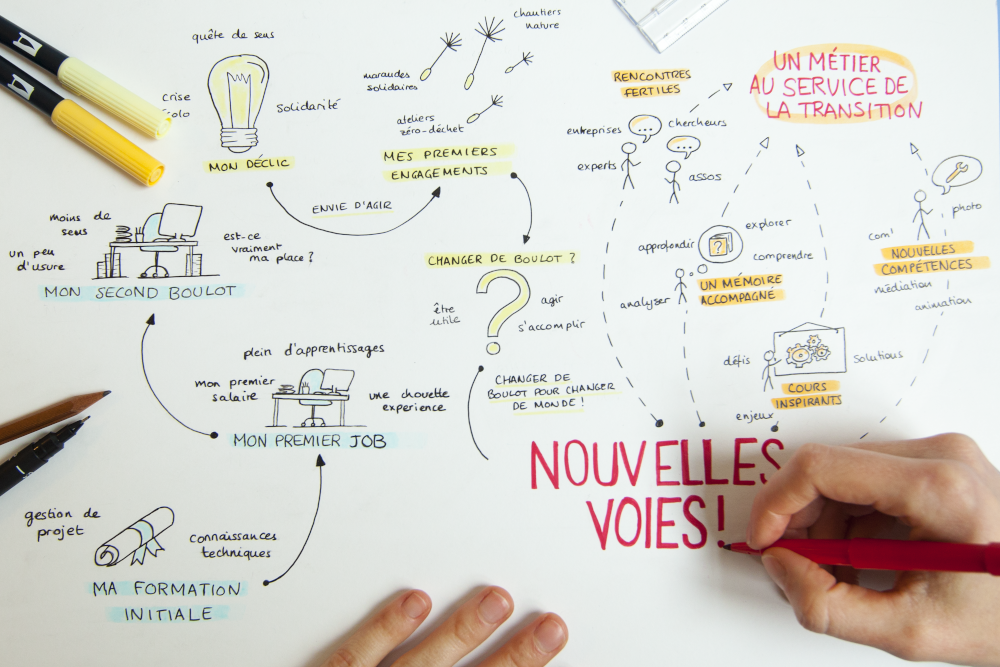 quête de sens
crise
solidarité
MON DÉCLIC
chantiers
nature
maraudes
solidaires
ateliers
zéro-déchet
MES PREMIERS
ENGAGEMENTS
ENVIE D'AGIR
RENCONTRES
FERTILES
entreprises
chercheurs
experts
assos
UN MÉTIER
AU SERVICE DE
LA TRANSITION
moins de
sens
un peu
d'usure
est-ce
vraiment
ma place ?
MON SECOND BOULOT
CHANGER DE BOULOT ?
être
utile
agir
s'accomplir
approfondir
explorer
comprendre
analyser
UN MÉMOIRE
ACCOMPAGNÉ
photo
com'
NOUVELLES
COMPÉTENCES
médiation
animation
plein d'apprentissages
mon premier
salaire
une chouette
experience
MON PREMIER JOB
CHANGER DE
BOULOT POUR CHANGER
DE MONDE !
défis
solutions
COURS
INSPIRANTS
enjeux
NOUVELLES
VOIES!
gestion de
projet
connaissances
techniques
MA FORMATION
INITIALE